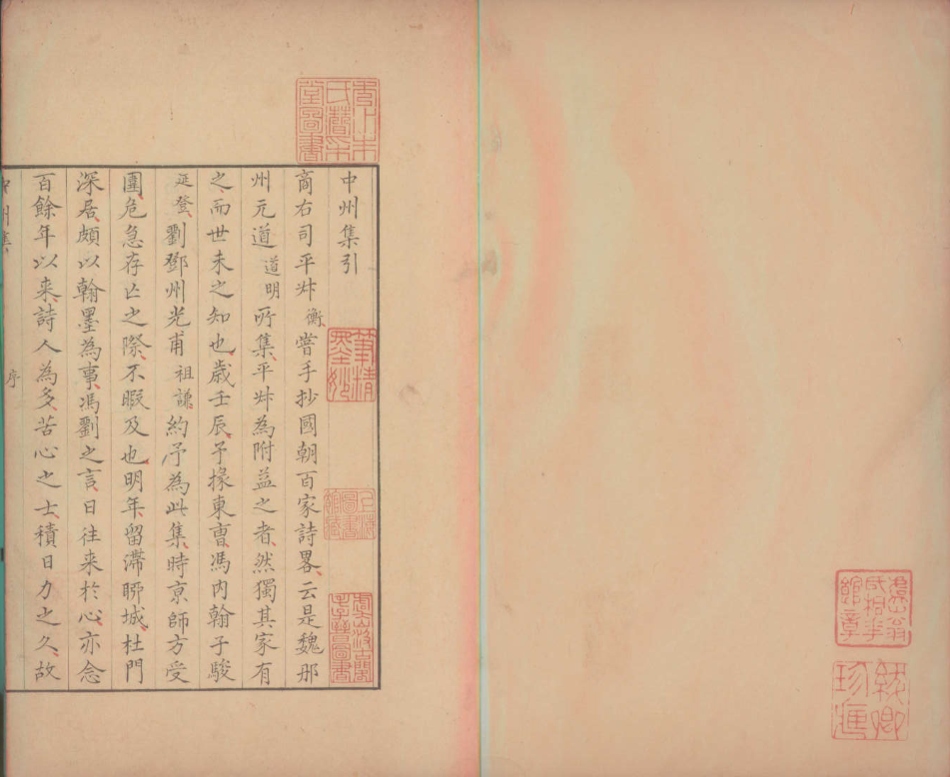 中州集引
商右司平叔衡嘗手抄國朝百家詩畧云是魏邢
州元道道明所集平叔為附益之者然獨其家有
之而世未之知也歲壬辰予掾東曹馮内翰子駿
延登劉鄧州光甫祖謙約予為此集時京師方受
圍危急存亡之際不暇及也明年留滯聊城杜門
深居頗以翰墨為事馮劉之言日往来於心亦念
百餘年以来詩人為多苦心之士積日力之久故
中州集
序
筆精墨妙
上海圖書館藏